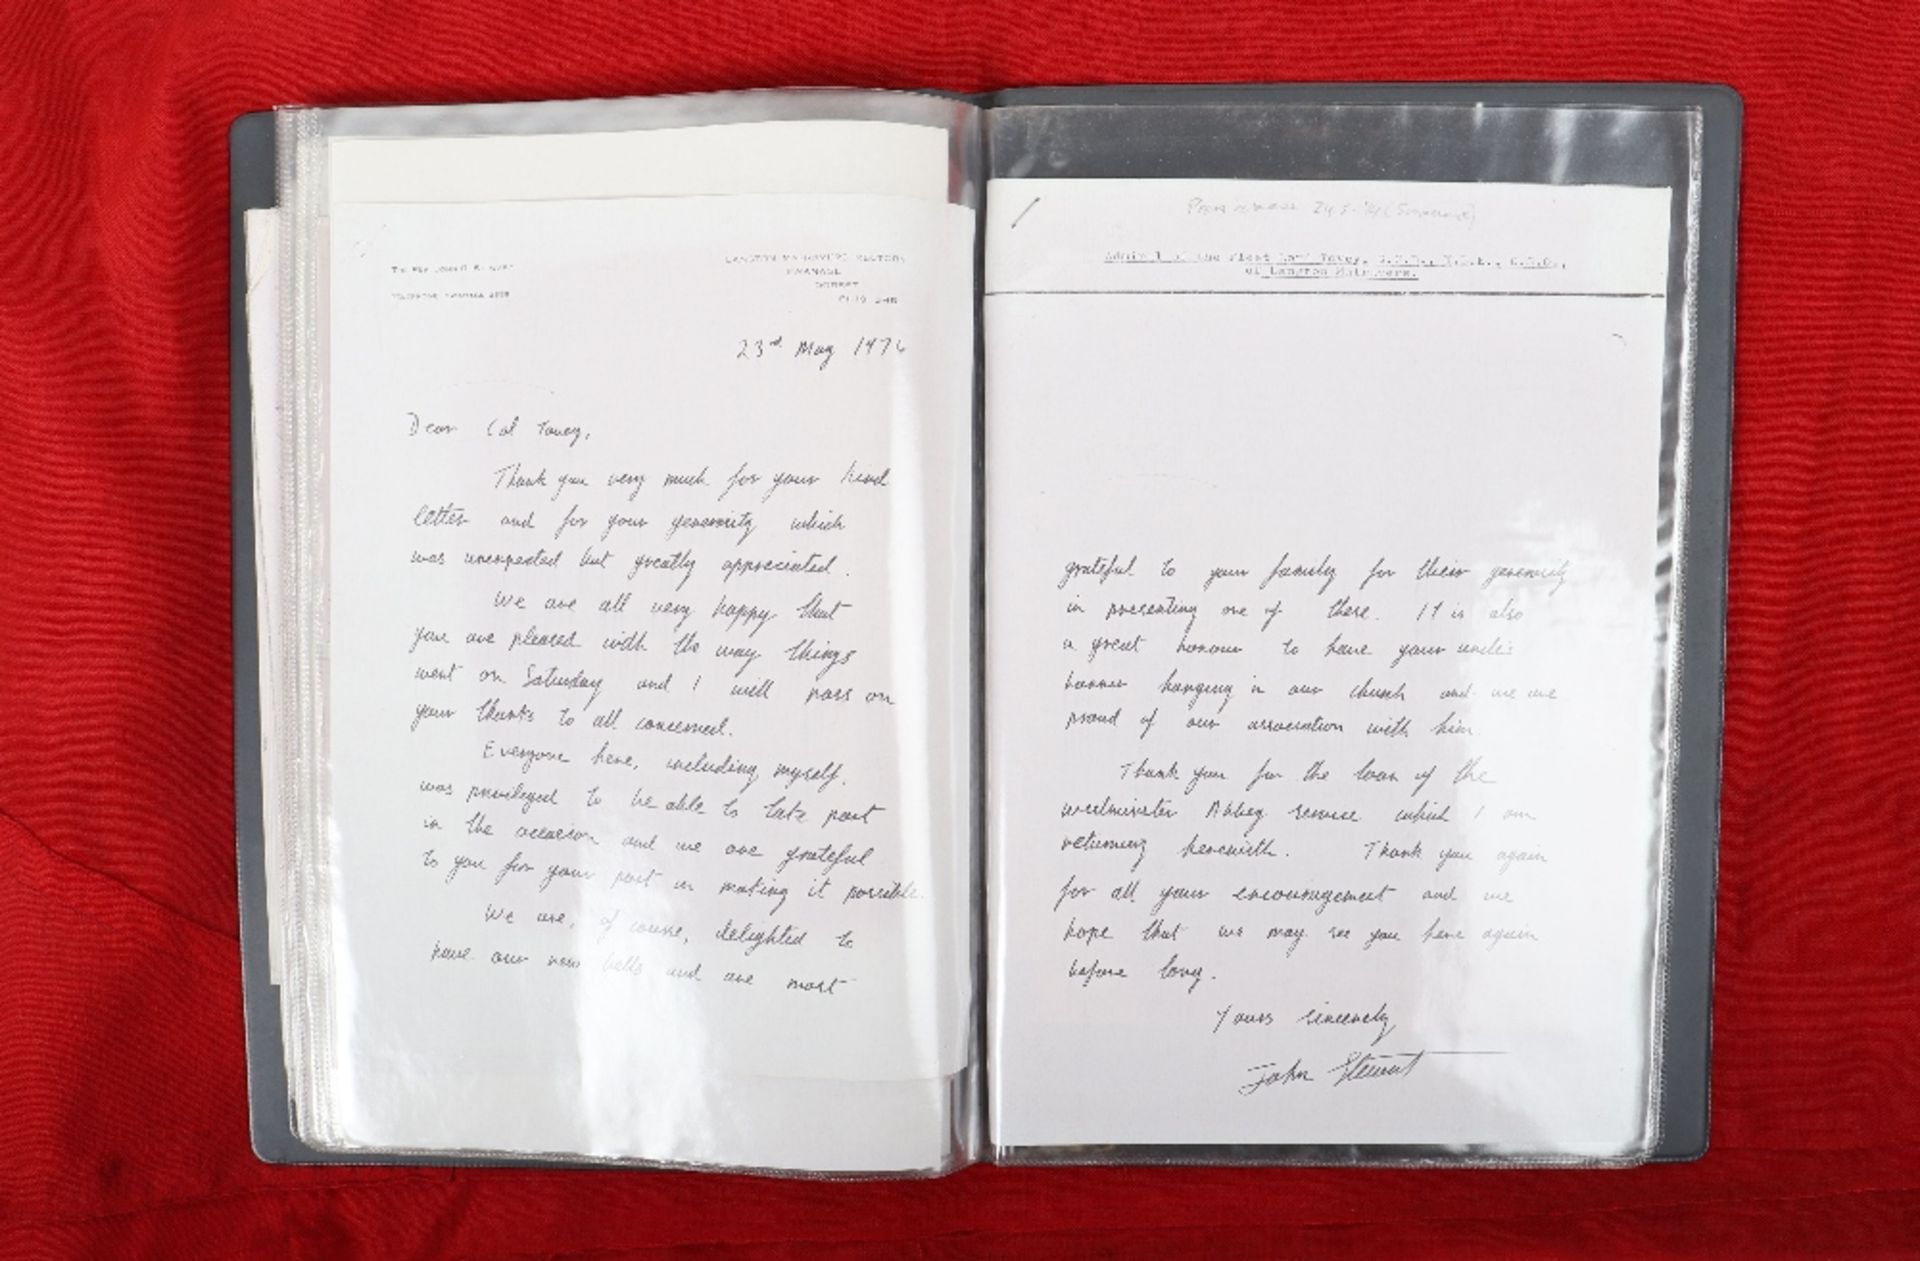 LANGTON MATRAVERS RECTORY
SWANAGE
DORSET
23rd May 1976
Dear Col Tovey,
Thank you very much for your kind
letter and for your generosity which
was unexpected but greatly appreciated.
We are all very happy that
you are pleased with the way things
went on Saturday and I will pass on
your thanks to all concerned.
Everyone here, including myself,
was privileged to be able to take part
in the occasion and we are grateful
to you for your part in making it possible.
We are, of course, delighted to
have our new bells and are most
Admiral of the Fleet Lord Tovey, G.C.B., K.B.E., D.S.O.,
of Langton Matravers.
grateful to your family for their generosity
in presenting one of these. It is also
a great honour to have your uncle's
banner hanging in our church and we are
proud of our association with him.
Thank you for the loan of the
Westminster Abbey service which I am
returning herewith. Thank you again
for all your encouragement and we
hope that we may see you here again
before long.
Yours sincerely
John Stewart